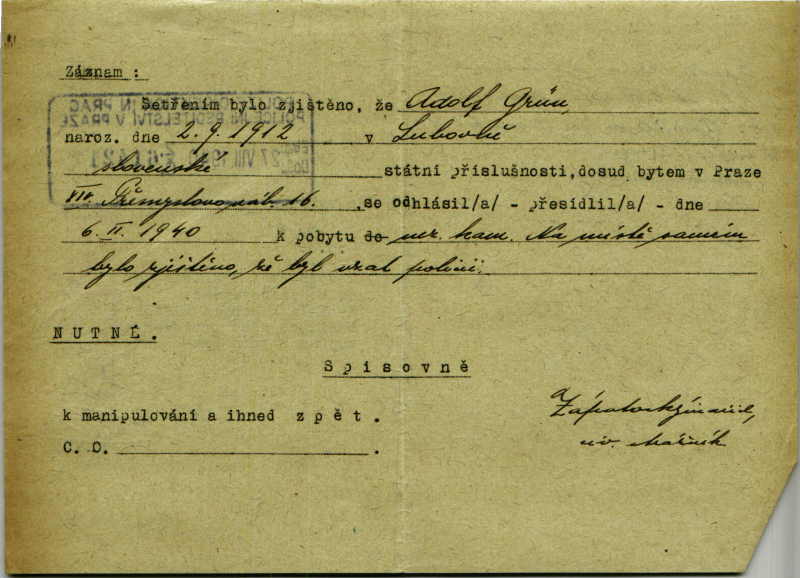 Záznam :
Šetřením bylo zjištěno, že Adolf Grün,
naroz. dne 2. 9. 1912 v Lubovně
slovenské státní příslušnosti, dosud bytem v Praze
VII. Přemyslovo náb. 16. , se odhlásil/a/ - přesídlil/a/ - dne
6. II. 1940 k pobytu do nez. kam. Na místě samém
bylo zjištěno, že byl vzat policií.
NUTNÉ.
Spisovně
k manipulování a ihned zpět.
C. O. .